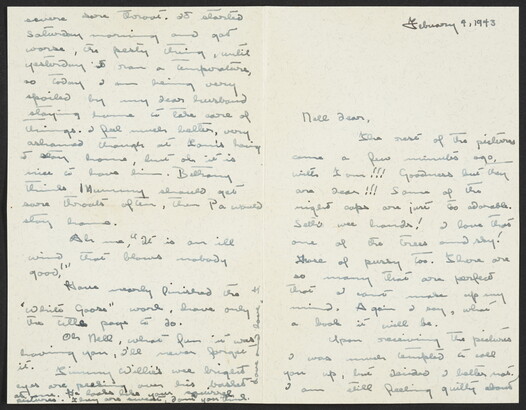 February 9, 1943
Nell dear,
The rest of the pictures
came a few minutes ago,
with I am!!! Goodness but they
are dear!!! Some of the
night caps are just so adorable.
wee hands! I love that
one of the trees and sky!
of pussy too. There are
so many that are perfect
that I can't make up my
mind. Again I say, what
a book it will be.
Upon receiving the pictures
I was much tempted to call
you up, but decided I better not.
I am still feeling guilty about
severe sore throat. It started
Saturday morning and got
worse, the pesty thing, until
yesterday I ran a temperature,
so today I am being very
spoiled by my dear husband
staying home to take care of
things. I feel much better, very
ashamed though at Louis being
to stay home, but oh it is
nice to have him. Bethany
thinks Mummy should get
sore throats often, then Pa would
stay home.
Ah me, "It is an ill
wind that blows nobody
good,"
Have nearly finished the
"White Goose" work, have only
the title page to do.
Oh Nell, what fun it was
having you, I'll never forget
it.
Jimmy Willie's wee bright
eyes are peeking over his basket
at me. He looks like your squirrel
pictures. They are sweet, don't you
love and love.